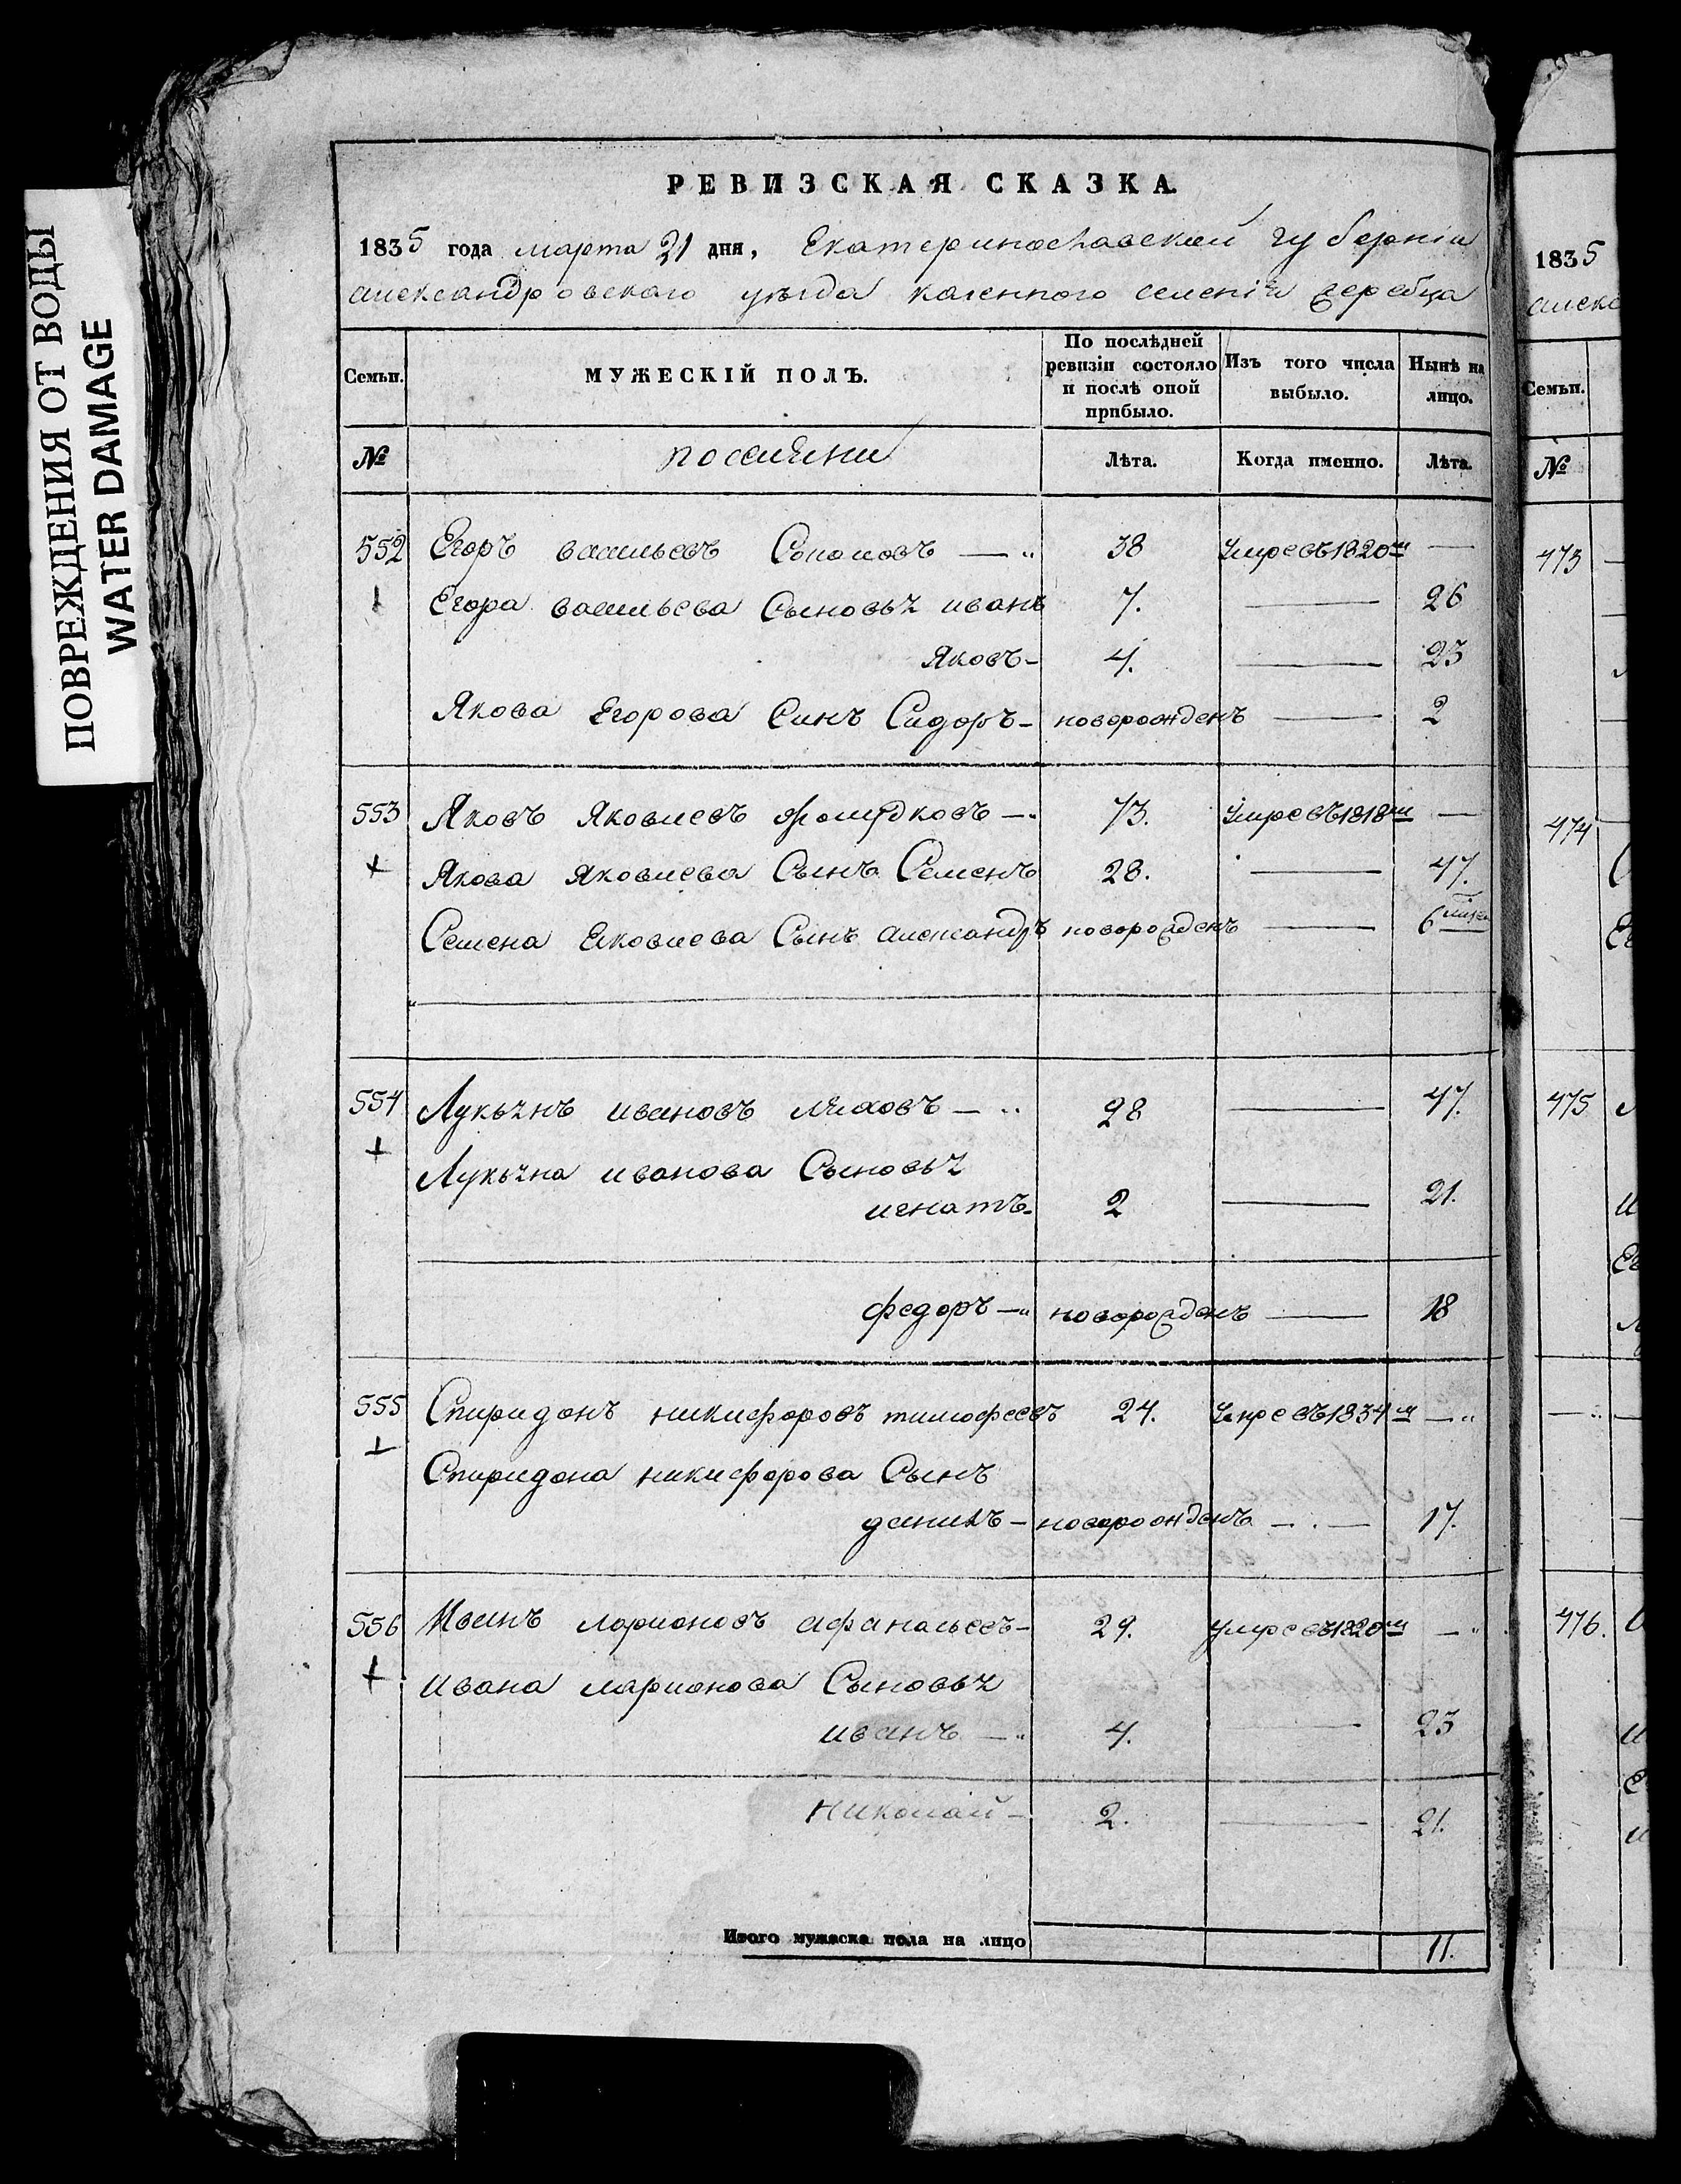 ПОВРЕЖДЕНИЯ ОТ ВОДЫ
WATER DAMAGE
РЕВИЗСКАЯ СКАЗКА.
1835 года марта 21 дня, Екатеринославской губернии
александровскаго уезда казенного селения жеребца
Семьи.
МУЖЕСКІЙ ПОЛЪ.
По послѣдней ревизіи состояло и послѣ оной прибыло.
Изъ того числа выбыло.
Нынѣ на лицо.
№
Лѣта.
Когда именно.
Лѣта.
552 Егоръ васильевъ — 38 Умре въ 1820м —
1 Егора васильева Сыновья иванъ 7. — 26
Яковъ — 4. — 23
Якова Егорова Синъ Сидоръ — новорожденъ — 2
553 Яковъ Яковлевъ — 73. Умре въ 1818м —
+ Якова Яковлева Сынъ Семенъ 28. — 47.
Семена Яковлева Сынъ александръ новорожденъ — 6
554 Лукьянъ ивановъ — 28 — 47.
+ Лукьяна иванова Сыновья
игнатъ — 2 — 21.
федоръ — новорожденъ — 18
555 Спиридонъ никифоровъ тимофеевъ 24. Умре въ 1834м —
+ Спиридона никифорова Сынъ
данилъ — новорожденъ — 17.
556 Иванъ ларионовъ афанасьевъ — 29. Умре въ 1820м —
+ ивана ларионова Сыновья
иванъ — 4. — 23
николай — 2. — 21.
Итого мужеска пола на лицо 11.
1835
алекс
Семьи.
№
473
474
475
476.